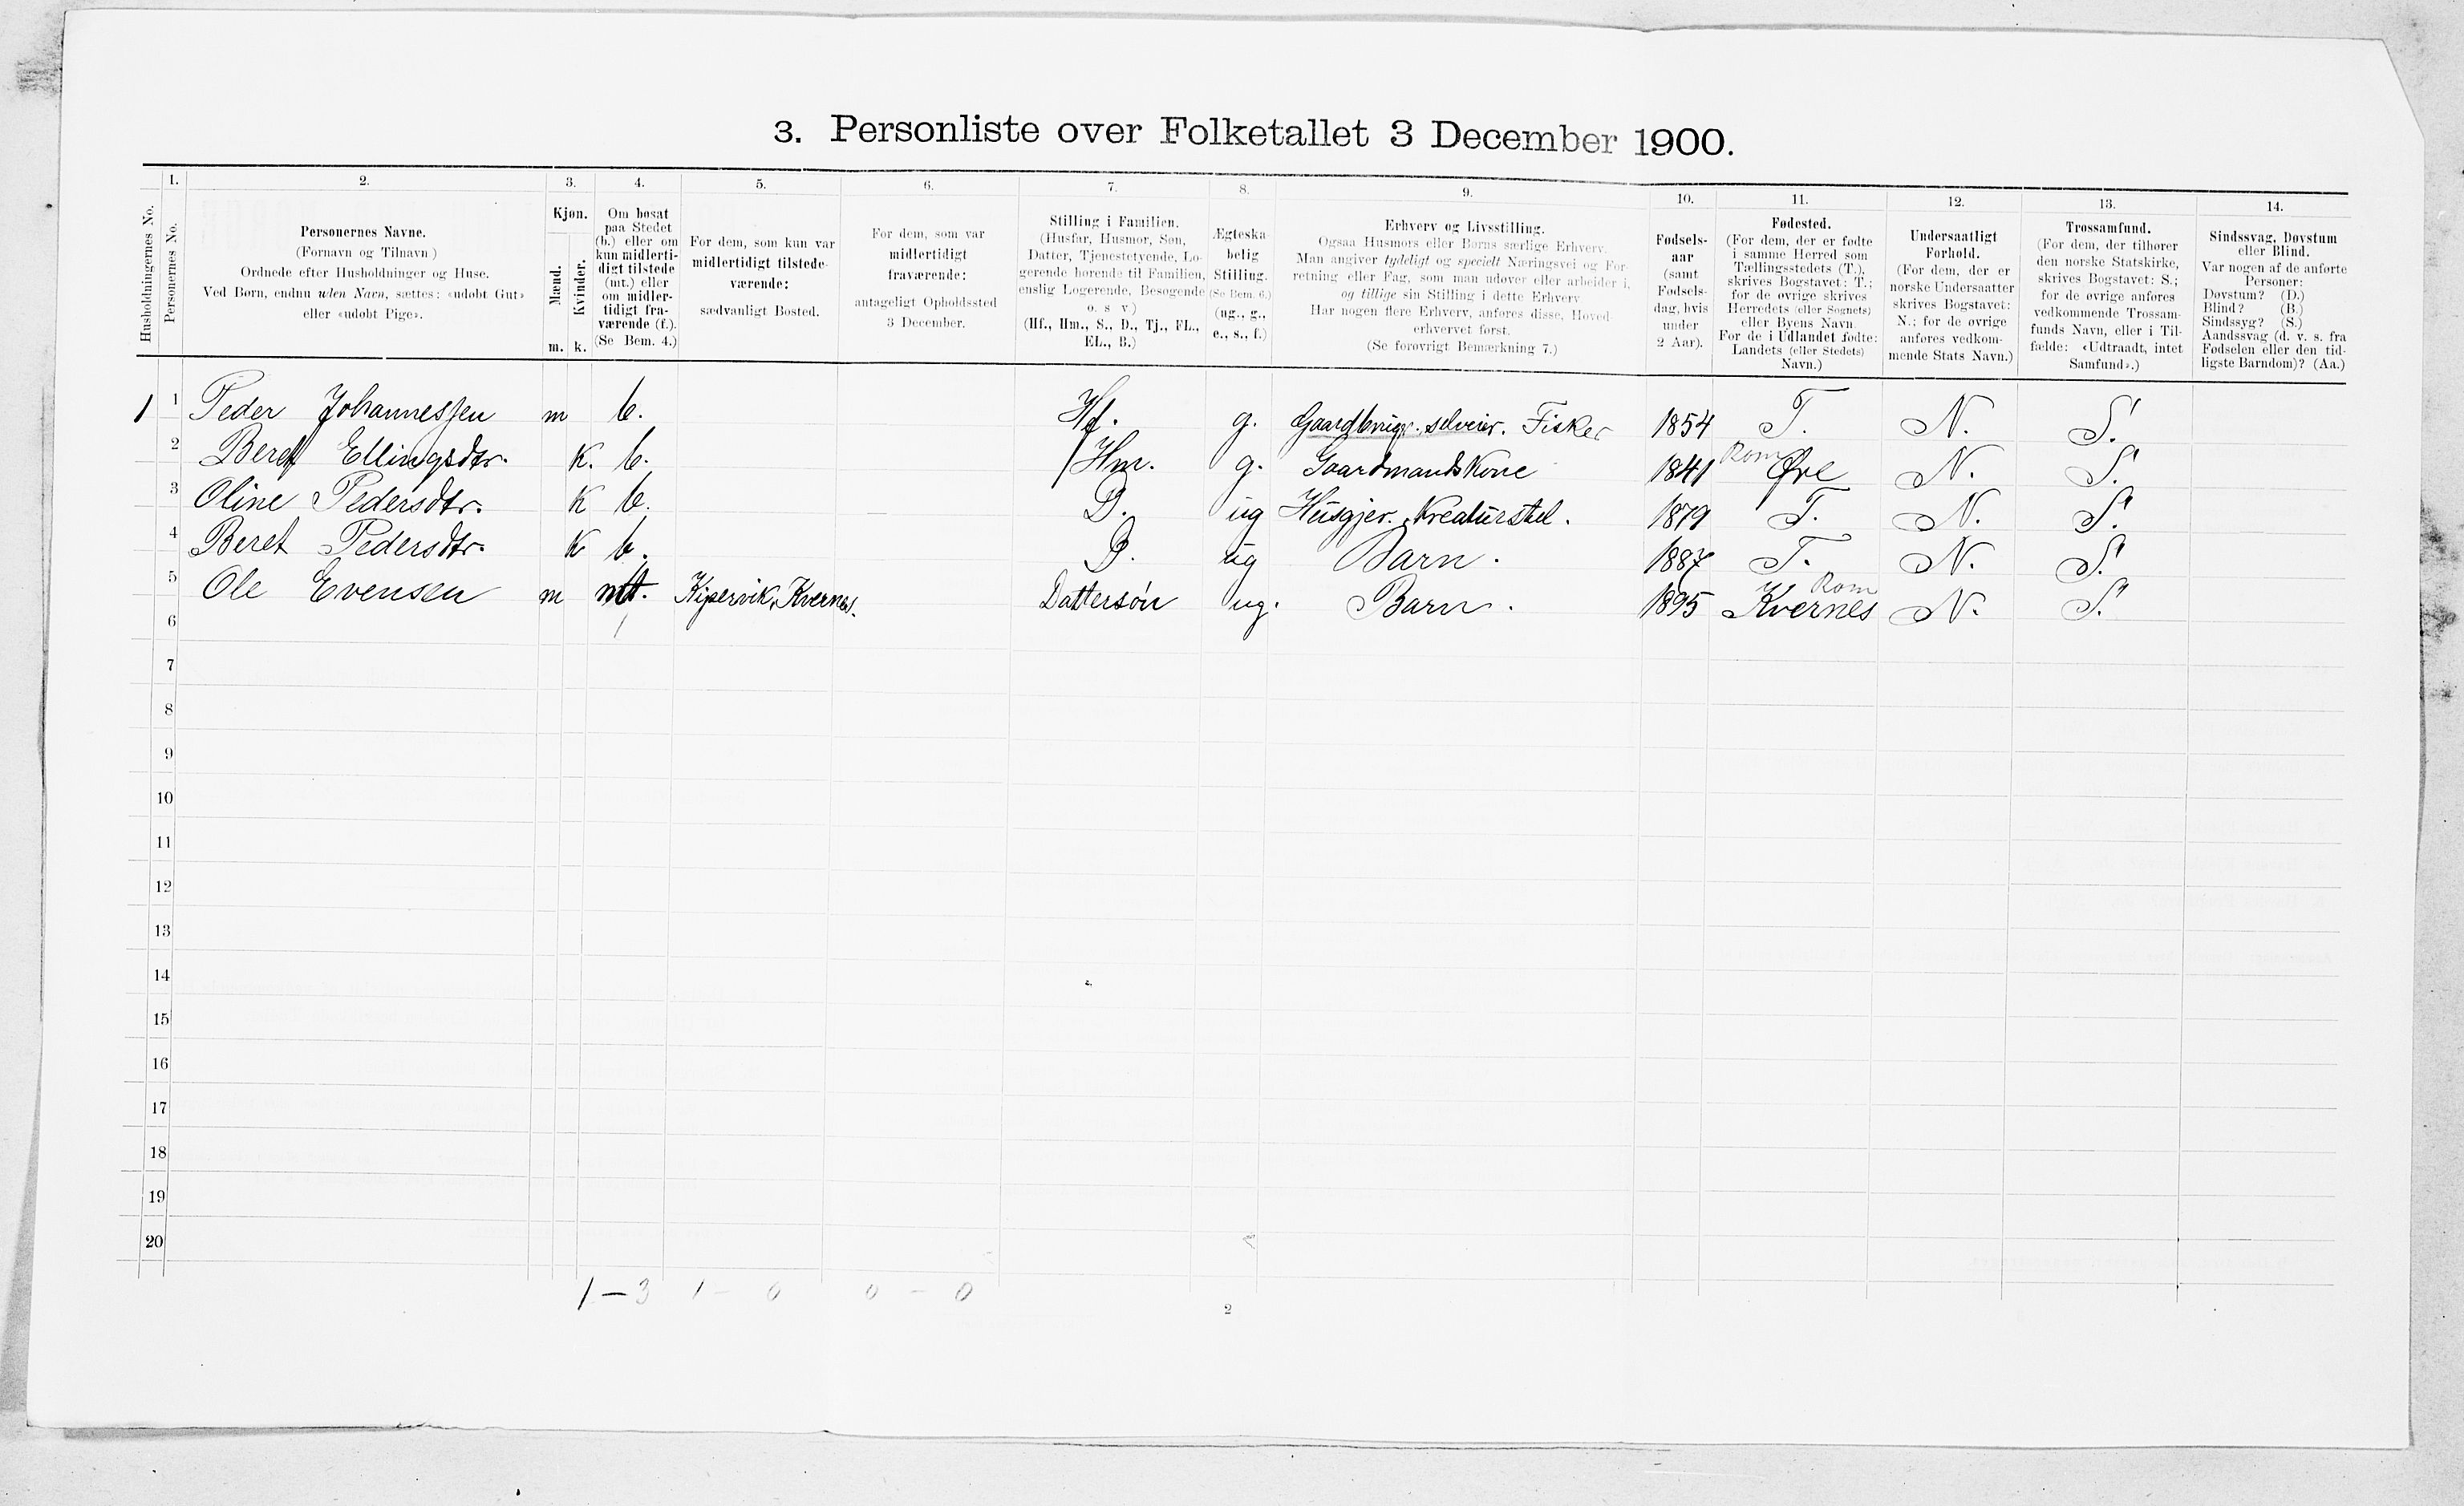 3. Personliste over Folketallet 3 December 1900.
1. 2. 3. 4. 5. 6. 7. 8. 9. 10. 11. 12. 13. 14.
Husholdningernes No.
Personernes No.
Personernes Navne.
(Fornavn og Tilnavn)
Ordnede efter Husholdninger og Huse.
Ved Børn, endnu uden Navn, sættes: «udøbt Gut»
eller «udøbt Pige».
Kjøn.
Mænd.
Kvinder.
m. k.
Om bosat
paa Stedet
(b.) eller om
kun midlerti-
digt tilstede
(mt.) eller
om midler-
tidigt fra-
værende (f.).
(Se Bem. 4.)
For dem, som kun var
midlertidigt tilstede-
værende:
sædvanligt Bosted.
For dem, som var
midlertidigt
fraværende:
antageligt Opholdssted
3 December.
Stilling i Familien.
(Husfar, Husmor, Søn,
Datter, Tjenestetyende, Lo-
gerende hørende til Familien,
enslig Logerende, Besøgende
o. s v.)
(Hf., Hm., S., D., Tj., FL.,
EL., B.)
Ægteska-
belig
Stilling.
(Se Bem. 6.)
(ug., g.,
e., s., f.)
Erhverv og Livsstilling.
Ogsaa Husmors eller Børns særlige Erhverv.
Man angiver tydeligt og specielt Næringsvei og For-
retning eller Fag, som man udøver eller arbeider i,
og tillige sin Stilling i dette Erhverv
Har nogen flere Erhverv, anføres disse, Hoved-
erhvervet først.
(Se forøvrigt Bemærkning 7.)
Fødsels-
aar
(samt
Fødsels-
dag, hvis
under
2 Aar).
Fødested.
(For dem, der er fødte
i samme Herred som
Tællingsstedets (T.),
skrives Bogstavet: T.;
for de øvrige skrives
Herredets (eller Sognets)
eller Byens Navn.
For de i Udlandet fødte:
Landets (eller Stedets)
Navn.)
Undersaatligt
Forhold.
(For dem, der er
norske Undersaatter
skrives Bogstavet:
N.; for de øvrige
anføres vedkom-
mende Stats Navn.)
Trossamfund.
(For dem, der tilhører
den norske Statskirke,
skrives Bogstavet: S.;
for de øvrige anføres
vedkommende Trossam-
funds Navn, eller i Til-
fælde: «Udtraadt, intet
Samfund».)
Sindssvag, Døvstum
eller Blind.
Var nogen af de anførte
Personer:
Døvstum? (D.)
Blind? (B.)
Sindssyg? (S.)
Aandssvag (d. v. s. fra
Fødselen eller den tid-
ligste Barndom)? (Aa.)
1 1 Peder Johannessen m b. Hf. g. Gaardbruger. selveier. Fisker 1854 T. N. S.
2 Beret Ellingsdtr. K. b. Hm. g. Gaardmandskone 1841 Rom Øre N. S.
3 Oline Pedersdtr. K b. D. ug Husgjer. Kreaturstel. 1879 T. N. S.
4 Beret Pedersdtr. K b. D. ug Barn. 1887 T. N. S.
5 Ole Evensen m mt. Kipervik, Kvernes. Dattersøn ug. Barn. 1895 Kvernes Rom N. S.
6
7
8
9
10
11
12
13
14
15
16
17
18
19
20
1 – 3 1 – 0 0 – 0
2